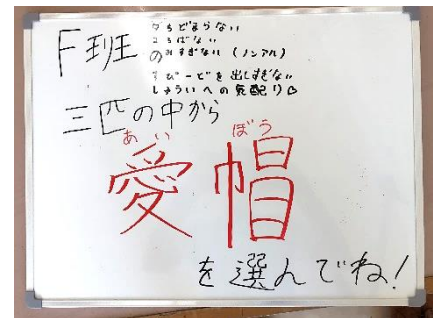 F班
たちどまらない
ころばない
のみすぎない(ノンアル)
すぴーどを出しすぎない
しゅういへの気配り♡
三匹の中から
あい ぼう
愛帽
を選んでね!